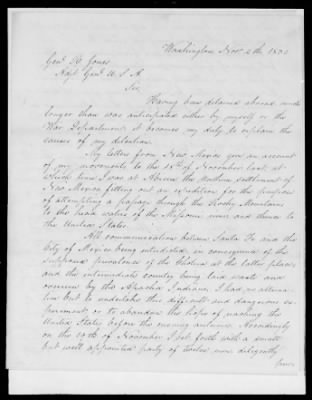 Washington Nov. 4th 18
Genl. R Jones
Adjt. Genl. U. S. A
Sir,
Having been detained abroad much
longer than was anticipated either by myself or the
War Department it becomes my duty to explain the
causes of my detention.
My letters from New Mexico give an account
of my movements to the 15th of November last, at
which time I was at the Northern settlement of
New Mexico fitting out an expedition for the purpose
of attempting a passage through the Rocky Mountains
to the head waters of the and thence to
the United States.
All communication between Santa Fe and the
City of Mexico being interdicted in consequence of the
supposed prevalence of the Cholera at the latter place,
and the intermediate country being laid waste and
overrun by the Apache Indians, I had no alterna-
tive but to undertake this difficult and dangerous ex-
periment or to abandon the hope of reaching the
United States before the ensuing autumn. Accordingly
on the of November I set forth with a small
but well appointed party of twelve men diligently